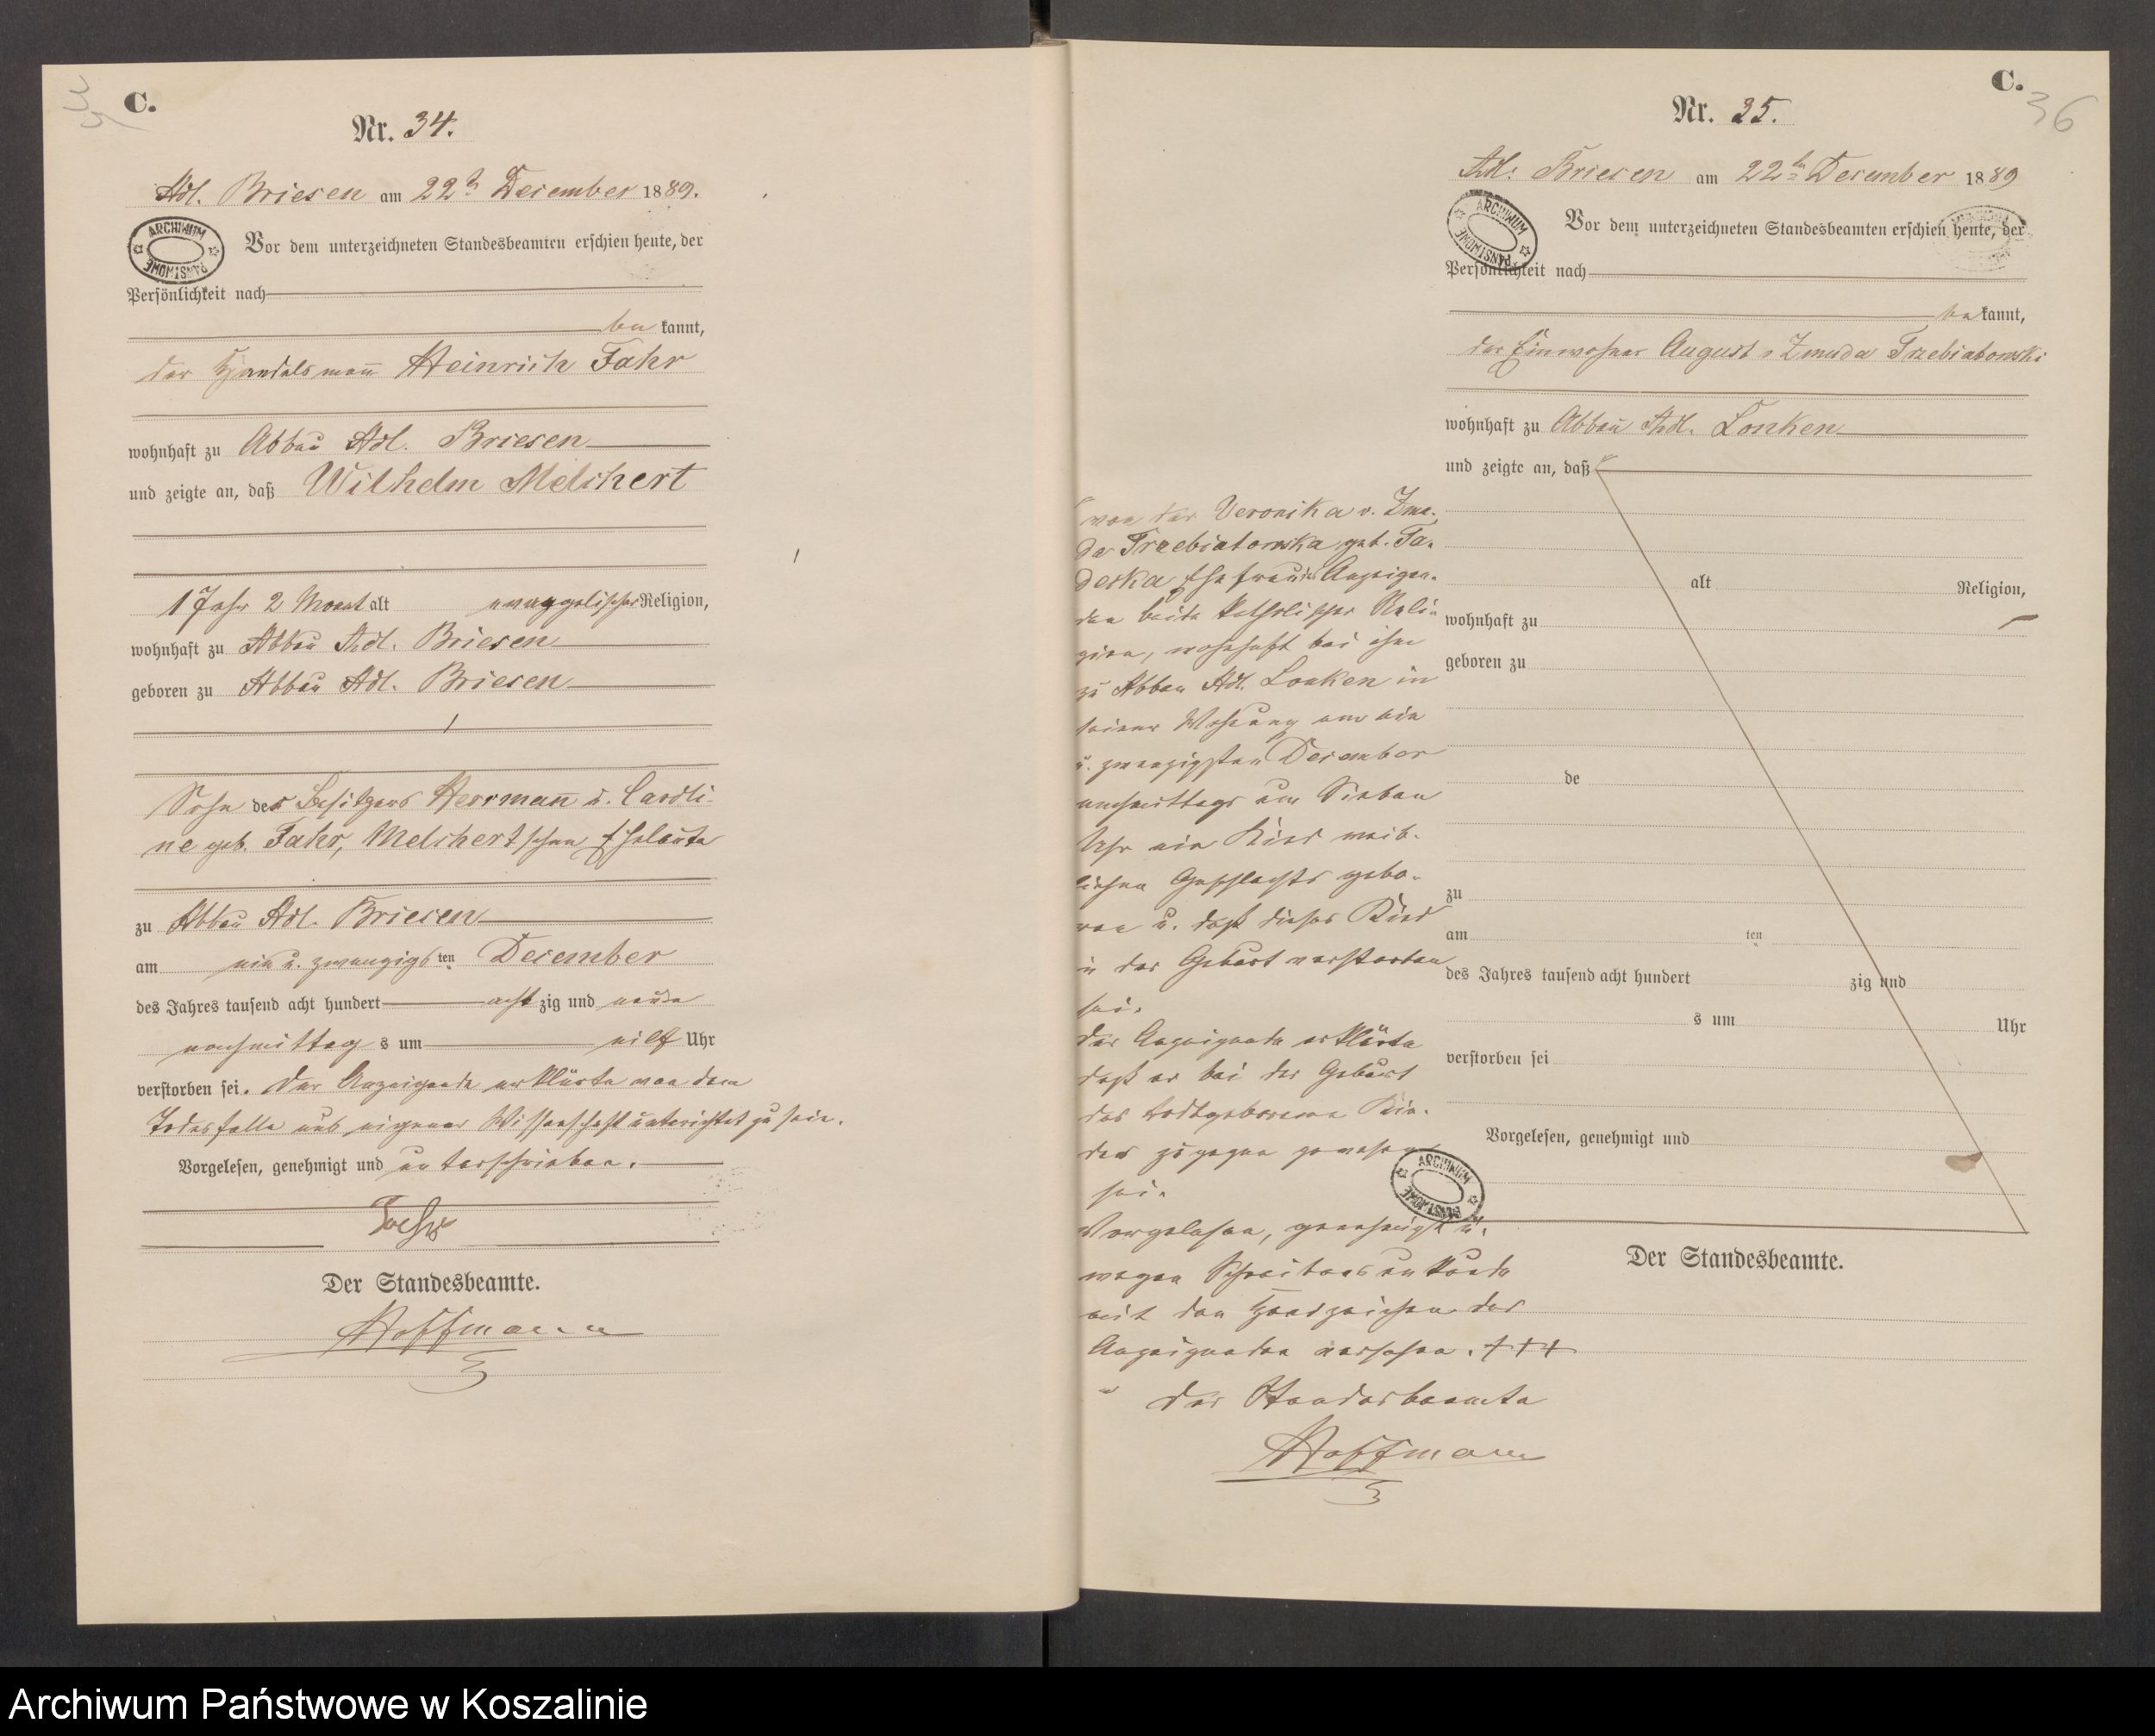 C.
Nr. 34.
Adl. Briesen am 22ten December 1889.
ARCHIWUM PAŃSTWOWE
Vor dem unterzeichneten Standesbeamten erschien heute, der
Persönlichkeit nach
be kannt,
der Handelsmañ Heinrich Fahr
wohnhaft zu Abbau Adl. Briesen
und zeigte an, daß Wilhelm Melchert
1 Jahr 2 Monat alt evangelischer Religion,
wohnhaft zu Abbau Adl. Briesen
geboren zu Abbau Adl. Briesen
Sohn des Besitzers Herrmañ u. Caroli-
ne geb. Fahr, Melchertschen Eheleute
zu Abbau Adl. Briesen
am ein u. zwanzigsten December
des Jahres tausend acht hundert acht zig und neun
nachmittag s um elf Uhr
verstorben sei. Der Anzeigende erklärte von dem
Todesfalle aus eigener Wissenschaft unterichtet zu sein.
Vorgelesen, genehmigt und unterschrieben.
Fahr
Der Standesbeamte.
Hoffmann
C.
36
Nr. 35.
Adl. Briesen am 22ten December 1889
ARCHIWUM PAŃSTWOWE
Vor dem unterzeichneten Standesbeamten erschien heute, der
Persönlichkeit nach
be kannt,
der Einwohner August v Zmuda Trzebiatowski
wohnhaft zu Abbau Adl. Lonken
und zeigte an, daß
alt Religion,
wohnhaft zu
geboren zu
de
zu
am ten
des Jahres tausend acht hundert zig und
s um Uhr
verstorben sei
Vorgelesen, genehmigt und
Der Standesbeamte.
von der Veronika v. Zmu-
da Trzebiatowska geb. Ja-
deska Ehefrau des Anzeigen-
den beide katholischer Reli-
gion, wohnhaft bei ihm
zu Abbau Adl. Lonken in
seiner Wohnung am ein
u. zwanzigsten December
nachmittags um Sieben
Uhr ein Kind weib-
lichen Geschlechts gebo-
ren u. daß dieses Kind
in der Geburt verstorben
sei.
Der Anzeigende erklärte
daß er bei der Geburt
des todtgeborenen Kin-
des zugegen gewesen
sei.
Vorgelesen, genehmigt u.
wegen Schreibensunkunde
mit den Handzeichen des
Anzeigenden versehen. +++
Der Standesbeamte
Hoffmann
ARCHIWUM PAŃSTWOWE
Archiwum Państwowe w Koszalinie